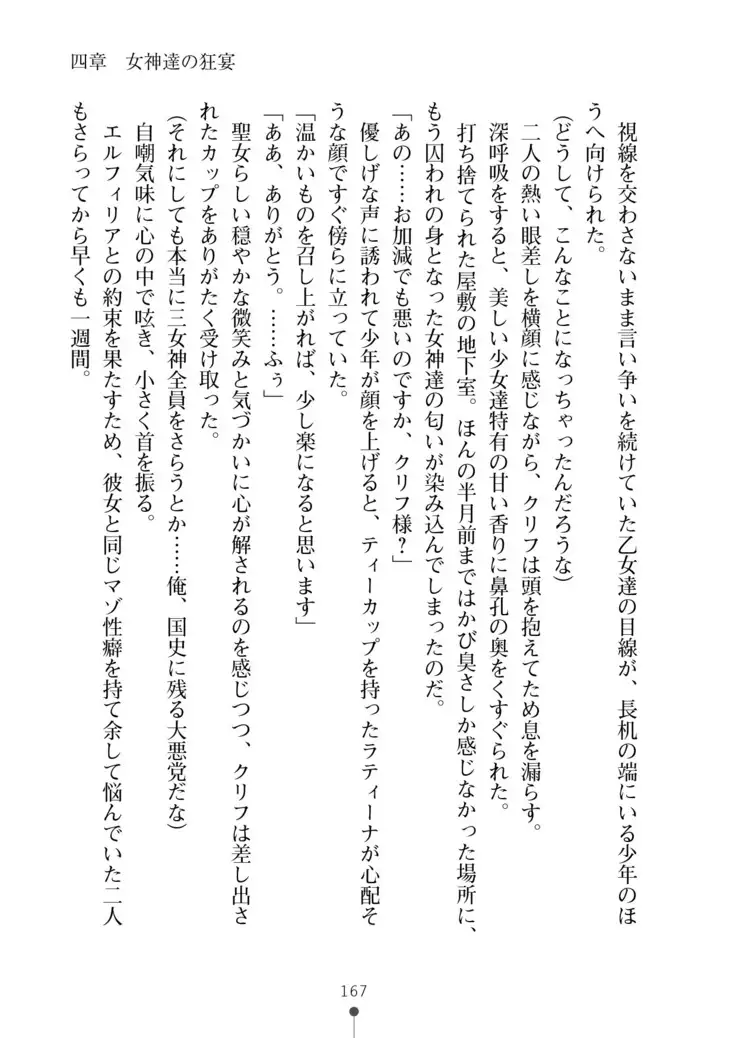 四章　女神達の狂宴
視線を交わさないまま言い争いを続けていた乙女達の目線が、長机の端にいる少年のほ
うへ向けられた。
(どうして、こんなことになっちゃったんだろうな)
二人の熱い眼差しを横顔に感じながら、クリフは頭を抱えてため息を漏らす。
深呼吸をすると、美しい少女達特有の甘い香りに鼻孔の奥をくすぐられた。
打ち捨てられた屋敷の地下室。ほんの半月前まではかび臭さしか感じなかった場所に、
もう囚われの身となった女神達の匂いが染み込んでしまったのだ。
「あの……お加減でも悪いのですか、クリフ様?」
優しげな声に誘われて少年が顔を上げると、ティーカップを持ったラティーナが心配そ
うな顔ですぐ傍らに立っていた。
「温かいものを召し上がれば、少し楽になると思います」
「ああ、ありがとう。……ふぅ」
聖女らしい穏やかな微笑みと気づかいに心が解されるのを感じつつ、クリフは差し出さ
れたカップをありがたく受け取った。
(それにしても本当に三女神全員をさらうとか……俺、国史に残る大悪党だな)
自嘲気味に心の中で呟き、小さく首を振る。
エルフィリアとの約束を果たすため、彼女と同じマゾ性癖を持て余して悩んでいた二人
もさらってから早くも一週間。
167